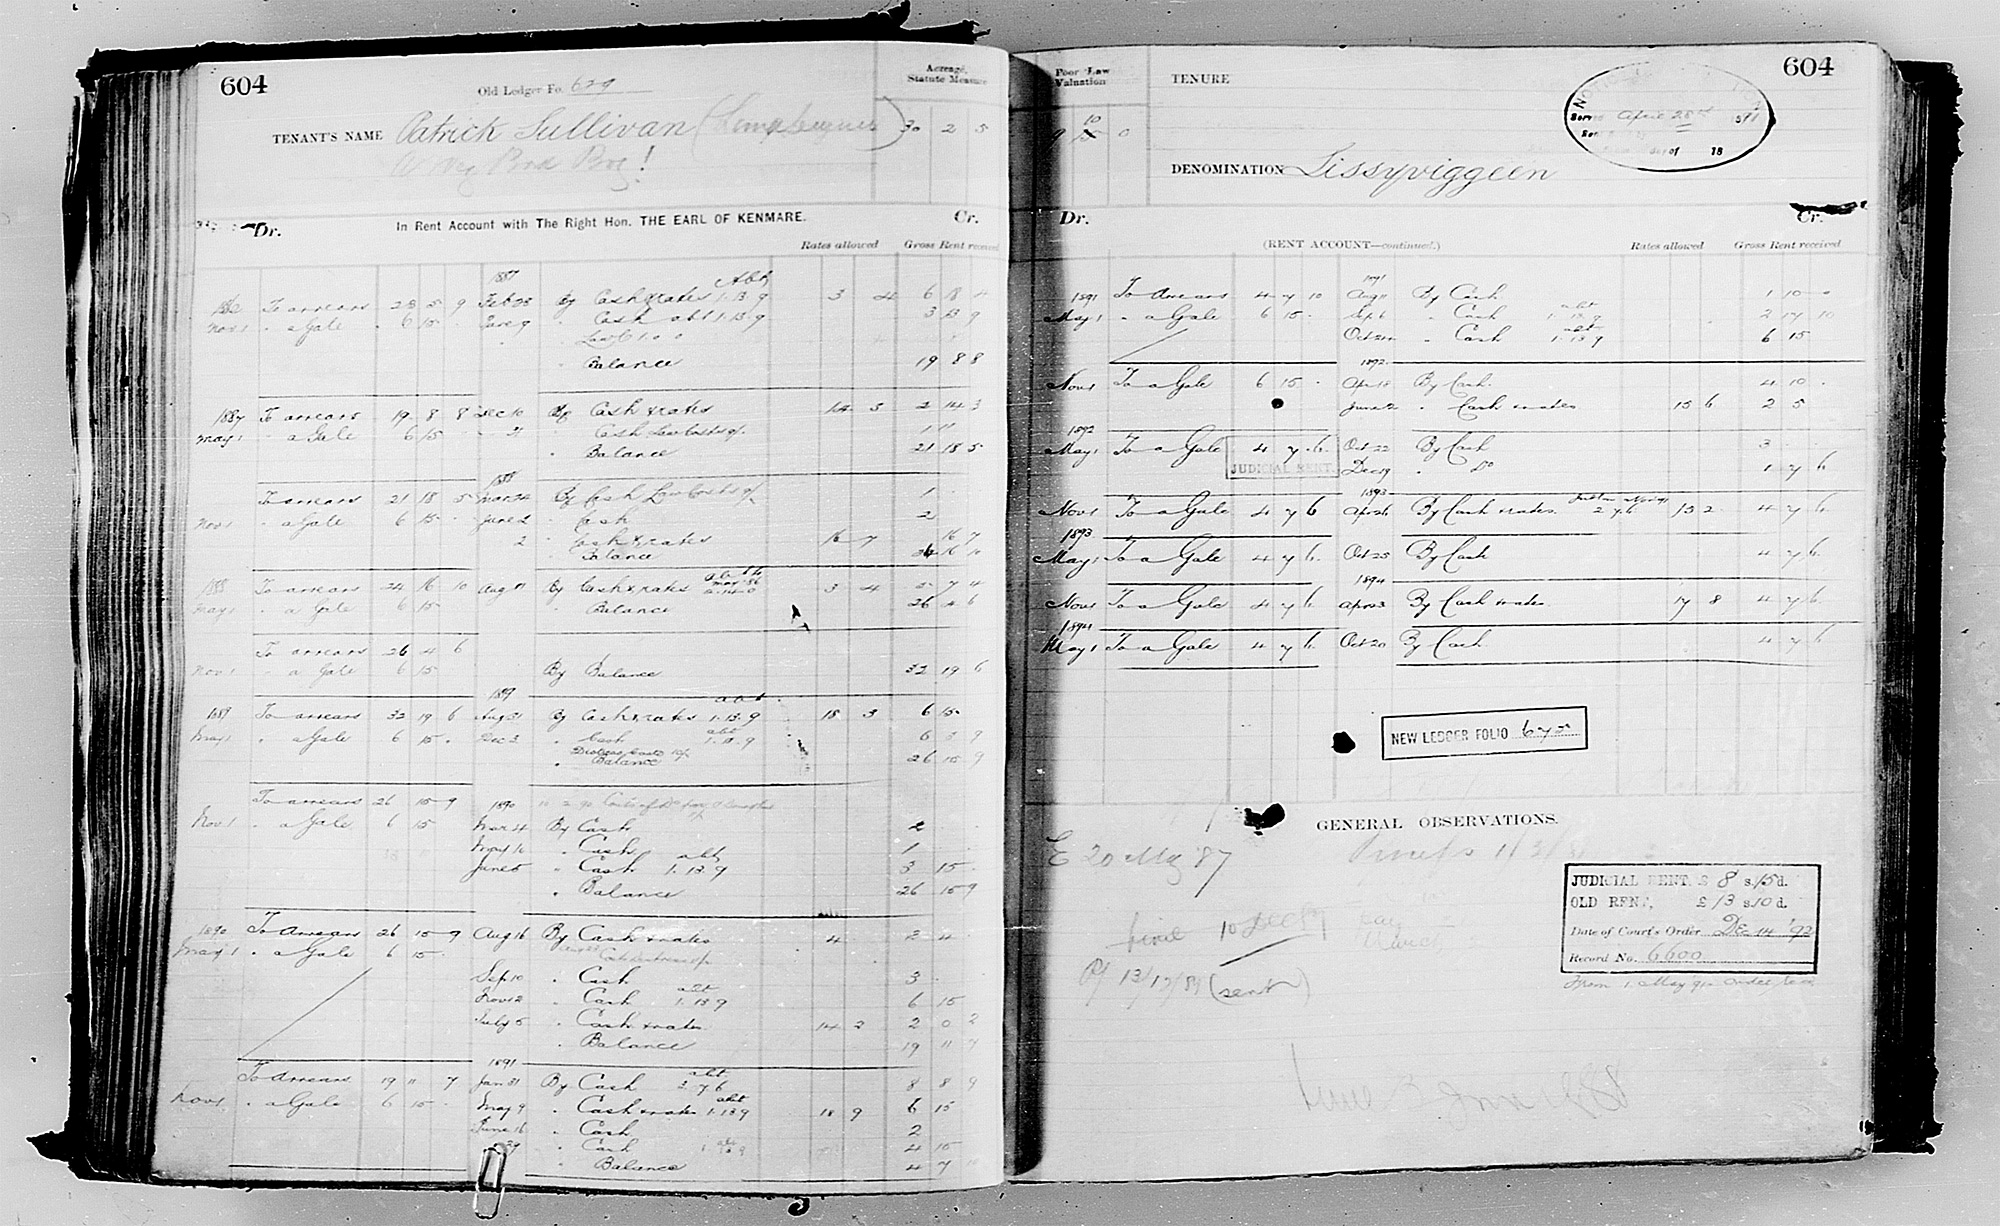 604
Old Ledger Fo. 629
Acreage, Statute Measure
TENANT'S NAME Patrick Sullivan
30 2 5
In Rent Account with The Right Hon. THE EARL OF KENMARE.
Dr. Cr.
Rates allowed Gross Rent received
1887
Nov 1 To arrears 28 5 9 Feb 28 By Cash & rates 1.13.9 3 4 6 18 4
" a Gale 6 15 " Cash abt 1.13.9 3 13 9
" Balance 19 8 8
1887 To arrears 19 8 8 Dec 10 By Cash & rates 14 3 2 14 3
May 1 " a Gale 6 15
" Balance 21 18 5
1888
To arrears 21 18 5 Mar 24 By Cash Law Costs 1
Nov 1 " a Gale 6 15 June 2 " Cash 2
2 " Cash & rates 16 7 16 7
" Balance 24 16 10
1888 To arrears 24 16 10 Aug 11 By Cash & rates 3 4
May 1 " a Gale 6 15 " Balance 26 4 6
To arrears 26 4 6
Nov 1 " a Gale 6 15 By Balance 32 19 6
1889
1889 To arrears 32 19 6 Aug 31 By Cash & rates 1.13.9 18 3 6 15
May 1 " a Gale 6 15 Dec 2 " Cash abt 1.13.9 6 3 9
" Balance 26 15 9
To arrears 26 15 9 1890
Nov 1 " a Gale 6 15 Mar 4 By Cash 2
May 10 " Cash 1
June 5 " Cash abt 1.13.9 3 15
" Balance 26 15 9
1890 To Arrears 26 15 9 Aug 16 By Cash & rates 4 2 4
May 1 " a Gale 6 15
Sep 10 " Cash 3
Nov 12 " Cash abt 1.13.9 6 15
July 5 " Cash & rates 14 2 2 0 2
" Balance 19 11 7
1891
To Arrears 19 11 7 Jan 31 By Cash abt 2 7 6 8 8 9
Nov 1 " a Gale 6 15 May 9 " Cash & rates abt 1.13.9 18 9 6 15
June 16 " Cash 2
" Cash 4 15
" Balance 4 7 10
604
Poor Law Valuation
10
9 15 0
TENURE
Served April 28th 1891
day of 18
DENOMINATION Lissyviggeen
Dr. Cr.
(RENT ACCOUNT—continued.) Rates allowed Gross Rent received
1891
1891 To Arrears 4 7 10 Aug 11 By Cash 1 10 0
May 1 " a Gale 6 15 Sep 6 " Cash abt 1.13.9 2 17 10
" Cash abt 1.13.9 6 15
1892
Nov 1 To a Gale 6 15 Apr 18 By Cash 4 10
June 2 " Cash & rates 15 6 2 5
1892
May 1 To a Gale 4 7 6 Oct 22 By Cash 3
JUDICIAL RENT. Dec 19 " Do 1 7 6
1893
Nov 1 To a Gale 4 7 6 Apr 26 By Cash & rates 2 7 6 13 2 4 7 6
1893
May 1 To a Gale 4 7 6 Oct 25 By Cash 4 7 6
1894
Nov 1 To a Gale 4 7 6 Apr 23 By Cash & rates 17 8 4 7 6
1894
May 1 To a Gale 4 7 6 Oct 20 By Cash 4 7 6
NEW LEDGER FOLIO 675
GENERAL OBSERVATIONS.
E 20 May '87
10 Dec 87
13/12/89 (sent)
JUDICIAL RENT, £ 8 s. 15 d.
OLD RENT, £ 13 s. 10 d.
Date of Court's Order De 14 '92
Record No. 6600
From 1 May 92